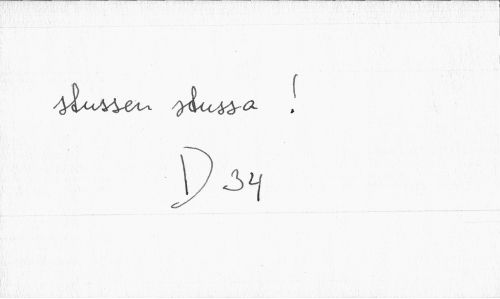 stussen stussa !
D 34